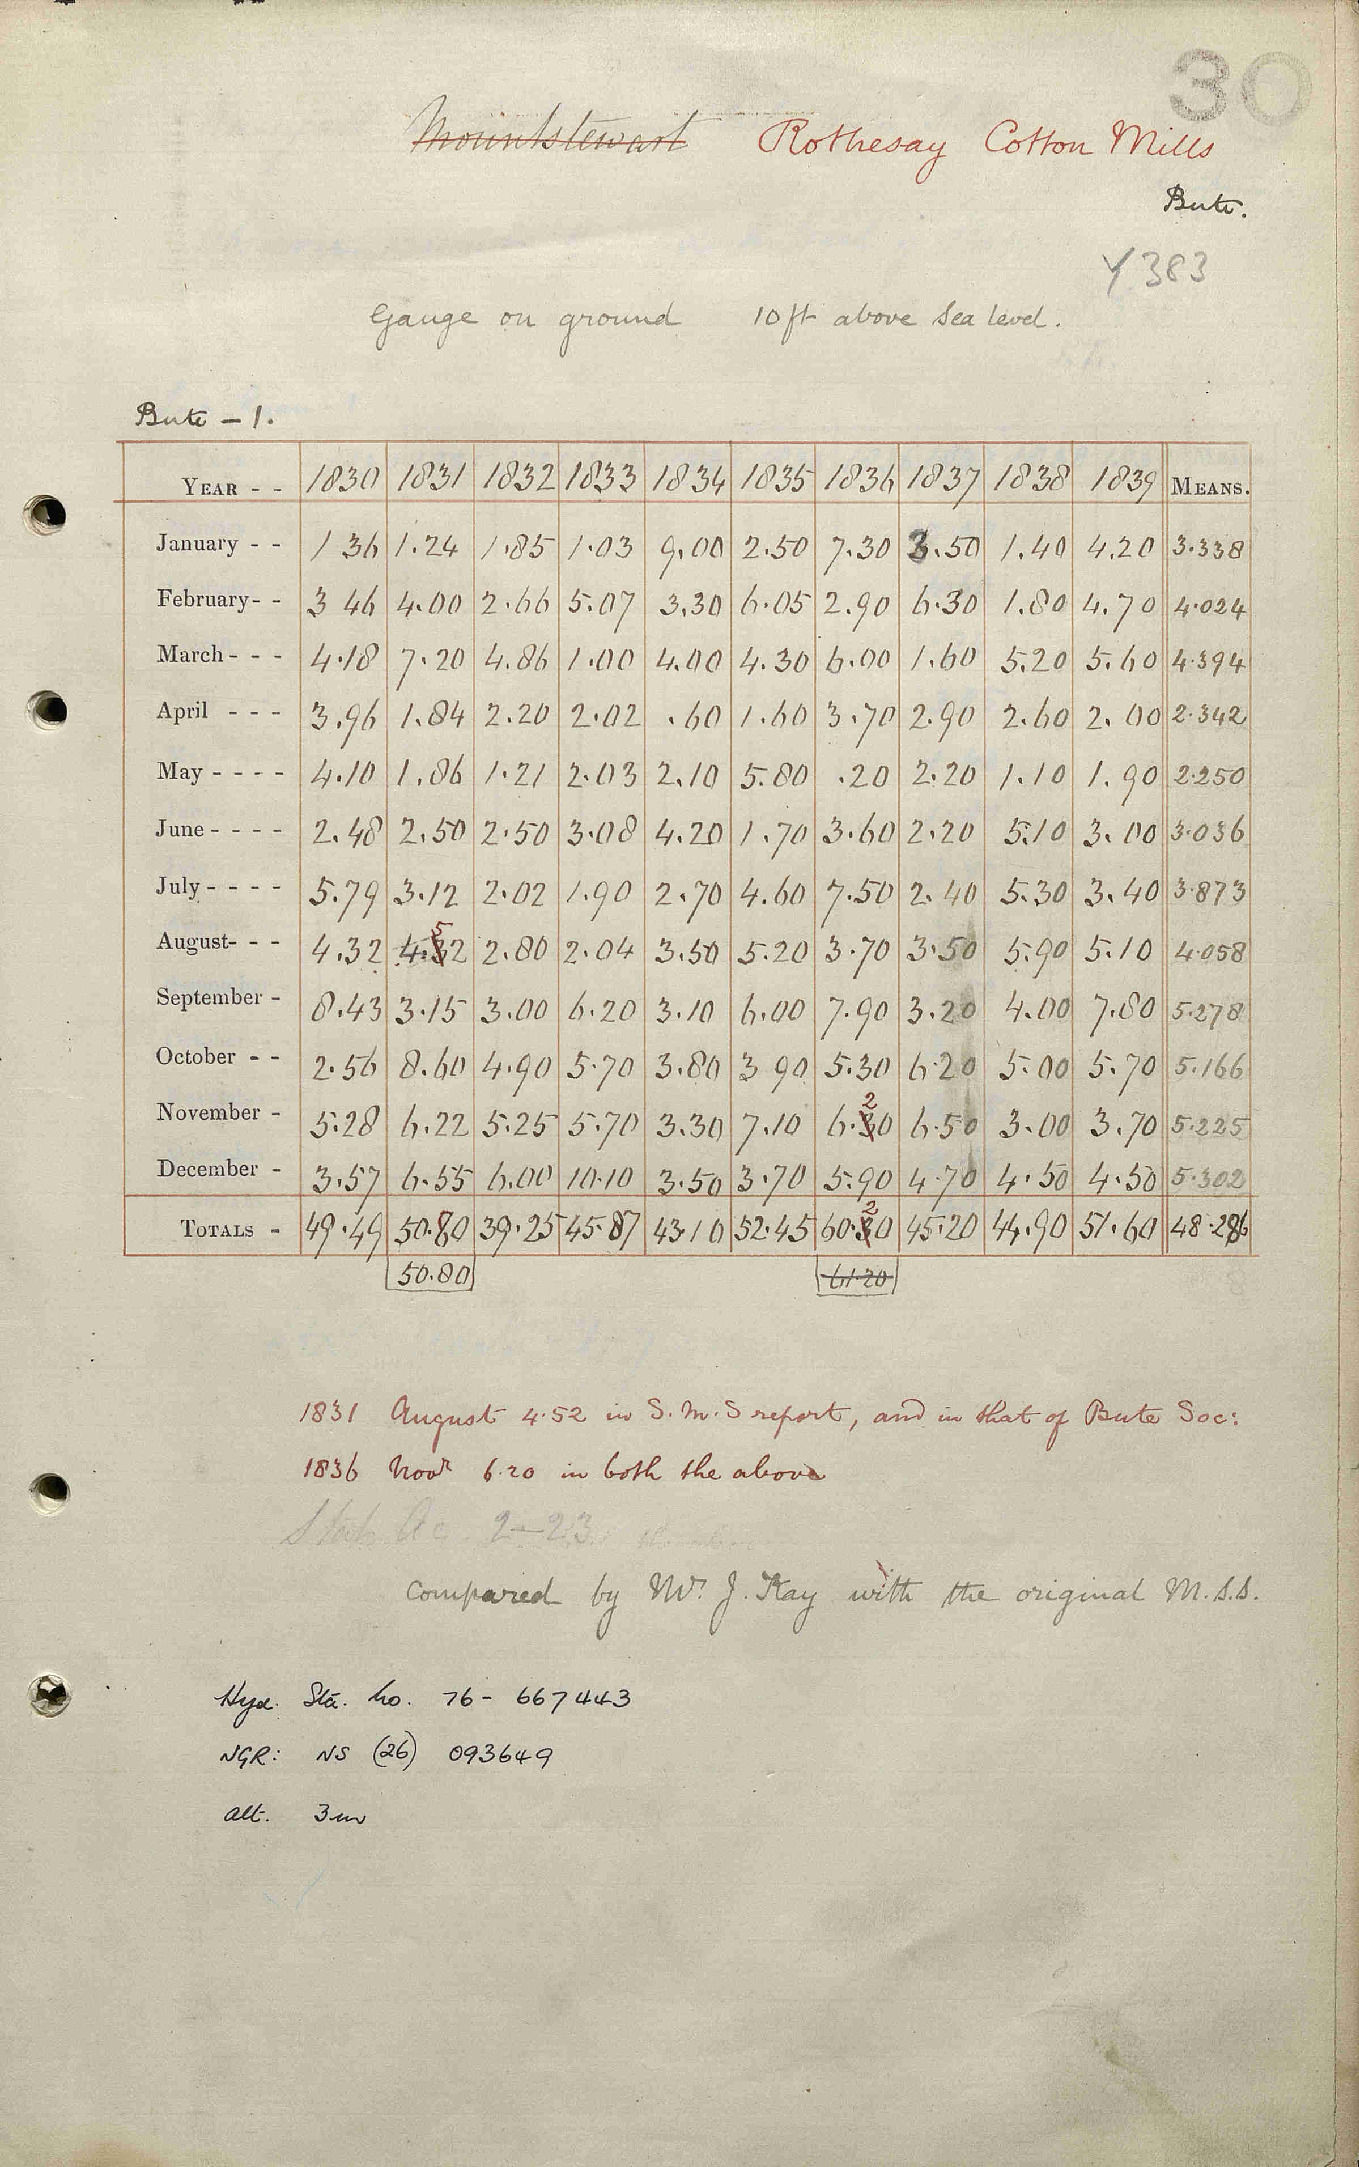 30
Mountstewart Rothesay Cotton Mills
Bute.
Y 383
Gauge on ground 10 ft above Sea level.
Bute - 1.
YEAR - - 1830 1831 1832 1833 1834 1835 1836 1837 1838 1839 MEANS.
January - - 1 36 1.24 1.85 1.03 9.00 2.50 7.30 3.50 1.40 4.20 3.338
February - - 3 46 4.00 2.66 5.07 3.30 6.05 2.90 6.30 1.80 4.70 4.024
March - - - 4.18 7.20 4.86 1.00 4.00 4.30 6.00 1.60 5.20 5.60 4.394
April - - - 3.96 1.84 2.20 2.02 .60 1.60 3.70 2.90 2.60 2.00 2.342
May - - - - 4.10 1.86 1.21 2.03 2.10 5.80 .20 2.20 1.10 1.90 2.250
June - - - - 2.48 2.50 2.50 3.08 4.20 1.70 3.60 2.20 5.10 3.00 3.036
July - - - - 5.79 3.12 2.02 1.90 2.70 4.60 7.50 2.40 5.30 3.40 3.873
August - - - 4.32 4.52 2.80 2.04 3.50 5.20 3.70 3.50 5.90 5.10 4.058
September - 8.43 3.15 3.00 6.20 3.10 6.00 7.90 3.20 4.00 7.80 5.278
October - - 2.56 8.60 4.90 5.70 3.80 3 90 5.30 6.20 5.00 5.70 5.166
November - 5.28 6.22 5.25 5.70 3.30 7.10 6.20 6.50 3.00 3.70 5.225
December - 3.57 6.55 6.00 10.10 3.50 3.70 5.90 4.70 4.50 4.50 5.302
TOTALS - 49.49 50.80 39.25 45.87 43.10 52.45 60.20 45.20 44.90 51.60 48.286
50.80 61.20
1831 August 4.52 in S. M. S report, and in that of Bute Soc:
1836 Novr 6.20 in both the above
2-23
Compared by Mr. J. Kay with the original M.S.S.
Hyd. Sta. no. 76- 667443
NGR: NS (26) 093649
alt. 3m